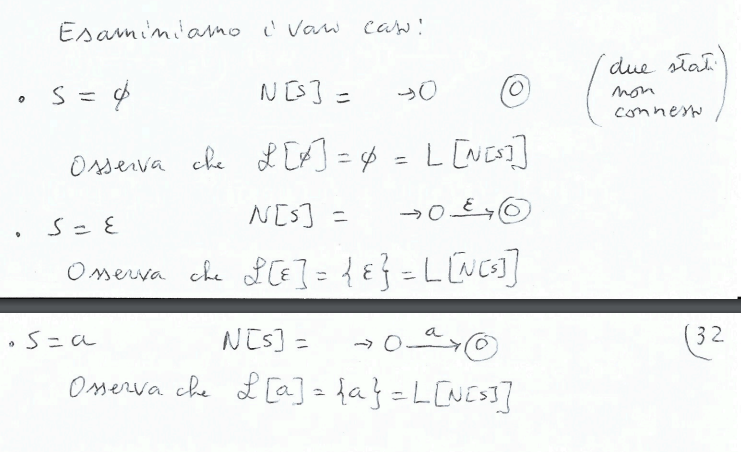 Esaminiamo i vari casi:
• S = ϕ N[S] = →O ◎ (due stati
non
connessi)
Osserva che ℒ[ϕ] = ϕ = L[N[S]]
• S = ε N[S] = →O –ε→ ◎
Osserva che ℒ[ε] = {ε} = L[N[S]]
• S = a N[S] = → O –a→ ◎ (32
Osserva che ℒ[a] = {a} = L[N[S]]